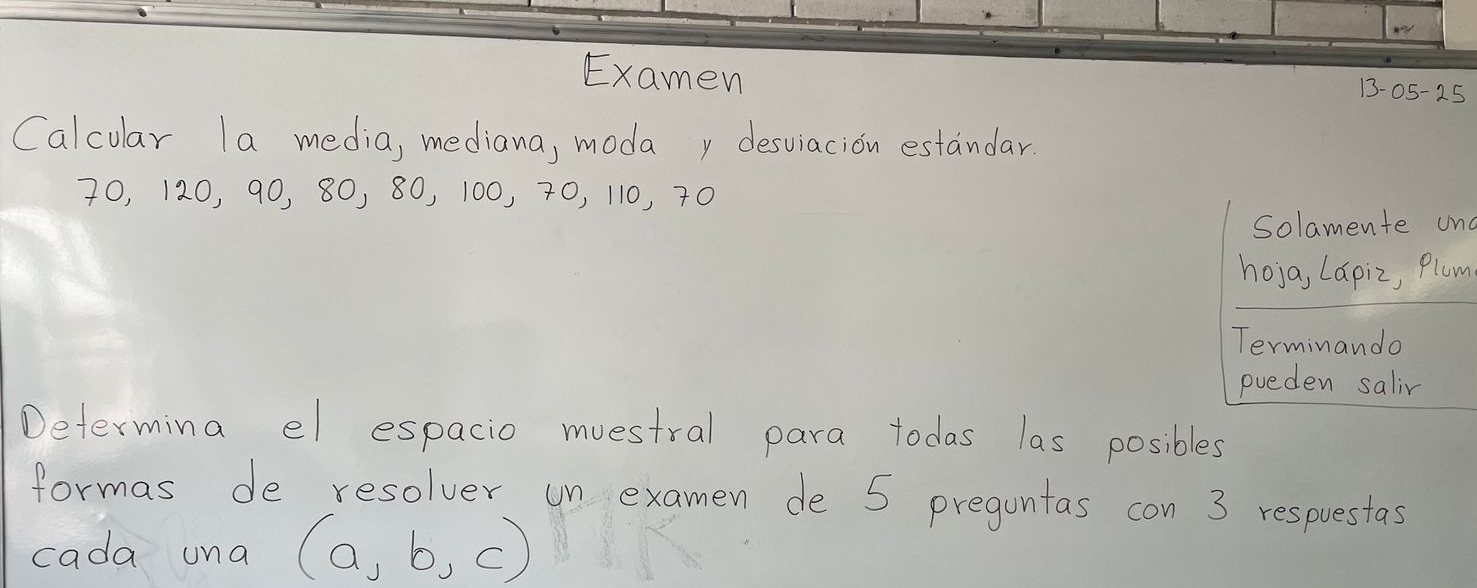 Examen
13-05-25
Calcular la media, mediana, moda y desviación estándar.
70, 120, 90, 80, 80, 100, 70, 110, 70
Solamente una
hoja, Lápiz, Pluma
Terminando
pueden salir
Determina el espacio muestral para todas las posibles
formas de resolver un examen de 5 preguntas con 3 respuestas
cada una (a, b, c)